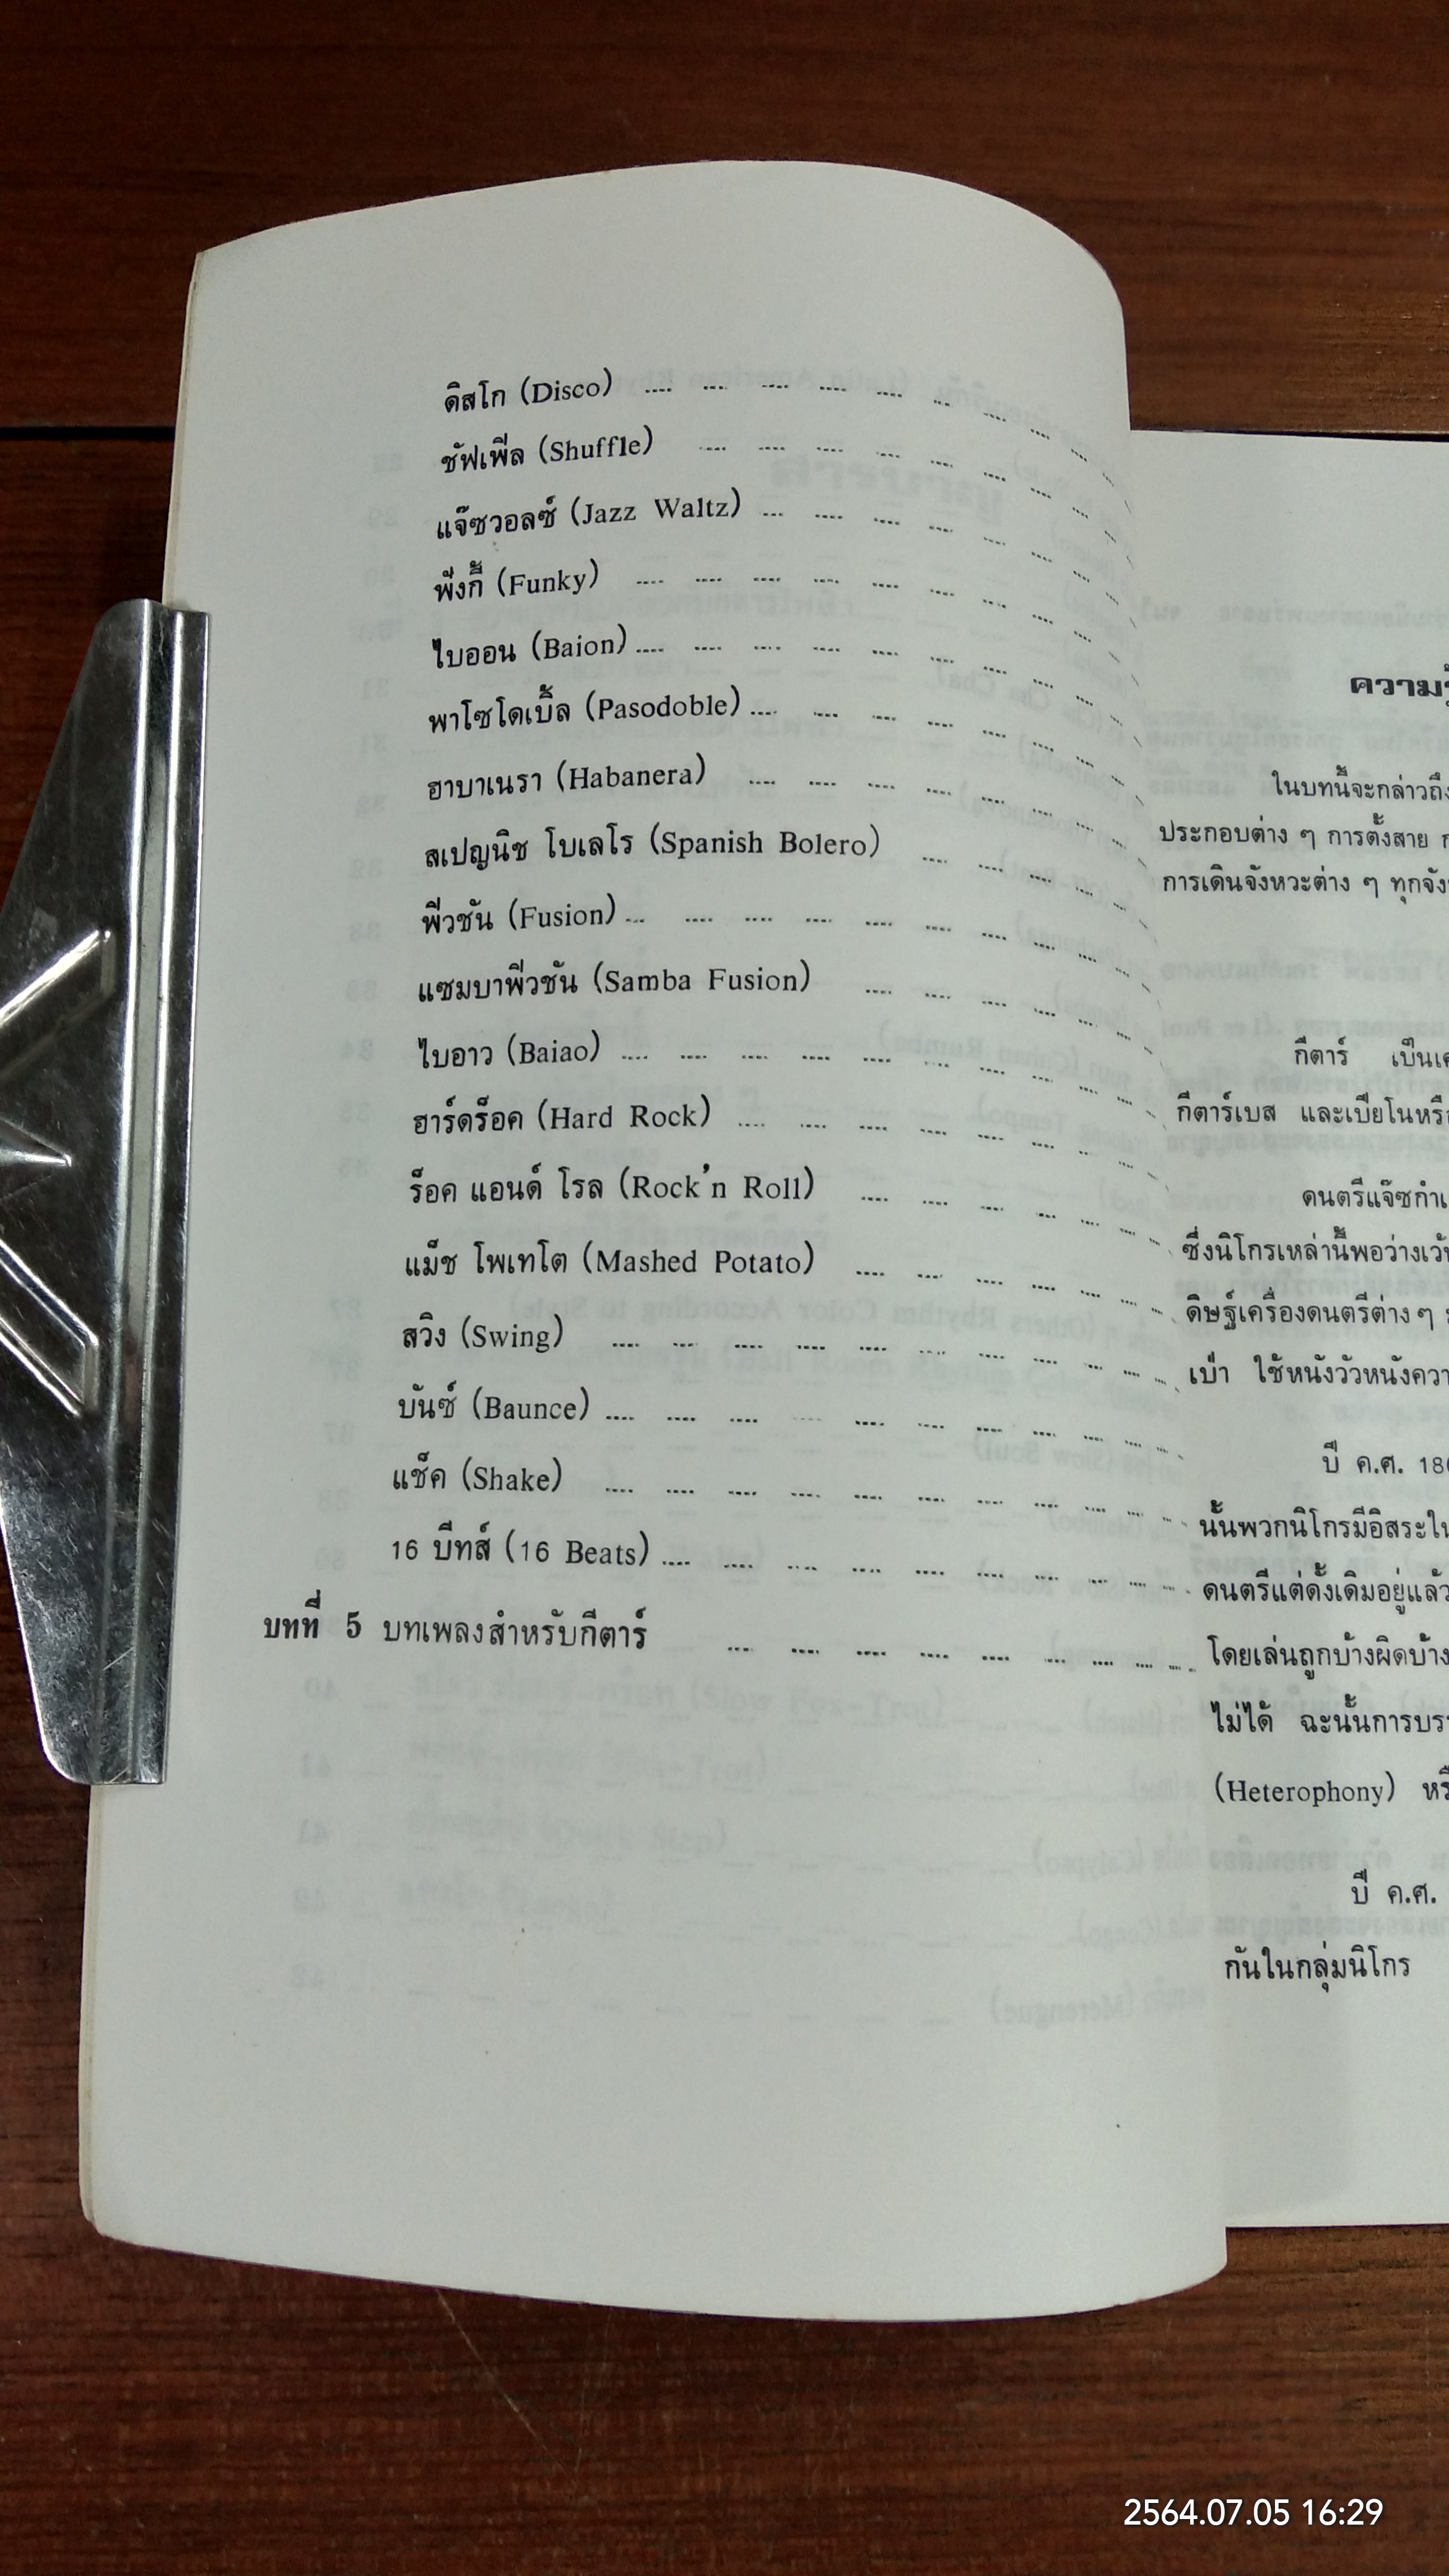 ดิสโก (Disco) .... .... .... .... .... .... .... .... ....
ชัฟเฟิล (Shuffle) .... .... .... .... .... .... .... ....
แจ๊ซวอลซ์ (Jazz Waltz) .... .... .... .... .... .... ....
ฟังกี้ (Funky) .... .... .... .... .... .... .... .... ....
ไบออน (Baion) .... .... .... .... .... .... .... .... ....
พาโซโดเบิ้ล (Pasodoble) .... .... .... .... .... .... ....
ฮาบาเนรา (Habanera) .... .... .... .... .... .... .... ....
สเปญนิช โบเลโร (Spanish Bolero) .... .... .... .... ....
ฟิวชัน (Fusion) .... .... .... .... .... .... .... .... ....
แซมบาฟิวชัน (Samba Fusion) .... .... .... .... .... ....
ไบอาว (Baiao) .... .... .... .... .... .... .... .... ....
ฮาร์ดร็อค (Hard Rock) .... .... .... .... .... .... .... ....
ร็อค แอนด์ โรล (Rock'n Roll) .... .... .... .... .... ....
แม็ช โพเทโต (Mashed Potato) .... .... .... .... .... ....
สวิง (Swing) .... .... .... .... .... .... .... .... .... ....
บันซ์ (Baunce) .... .... .... .... .... .... .... .... .... ....
แช็ค (Shake) .... .... .... .... .... .... .... .... .... ....
16 บีทส์ (16 Beats) .... .... .... .... .... .... .... .... ....
บทที่ 5 บทเพลงสำหรับกีตาร์ .... .... .... .... .... .... .... ....
ในบทนี้จะกล่าวถึง
ประกอบต่าง ๆ การตั้งสาย
การเดินจังหวะต่าง ๆ
กีตาร์ เป็น
กีตาร์เบส และเปียโน
ดนตรีแจ๊ซ
ซึ่งนิโกรเหล่านี้พอว่าง
ดิษฐ์เครื่องดนตรีต่าง ๆ
เป่า ใช้หนังวัวหนัง
ปี ค.ศ.
นั้นพวกนิโกรมีอิสระ
ดนตรีแต่ดั้งเดิมอยู่แล้ว
โดยเล่นถูกบ้างผิดบ้าง
ไม่ได้ ฉะนั้นการ
(Heterophony)
ปี ค.ศ.
กันในกลุ่มนิโกร
2564.07.05 16:29